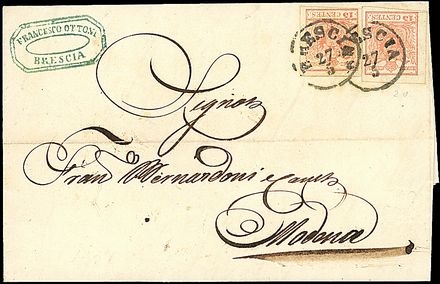 FRANCESCO OTTONI
BRESCIA
15 CENTES.
15 CENTES.
BRESCIA
27
3
BRESCIA
27
3
Signor
Fran Bernardoni e
Modena